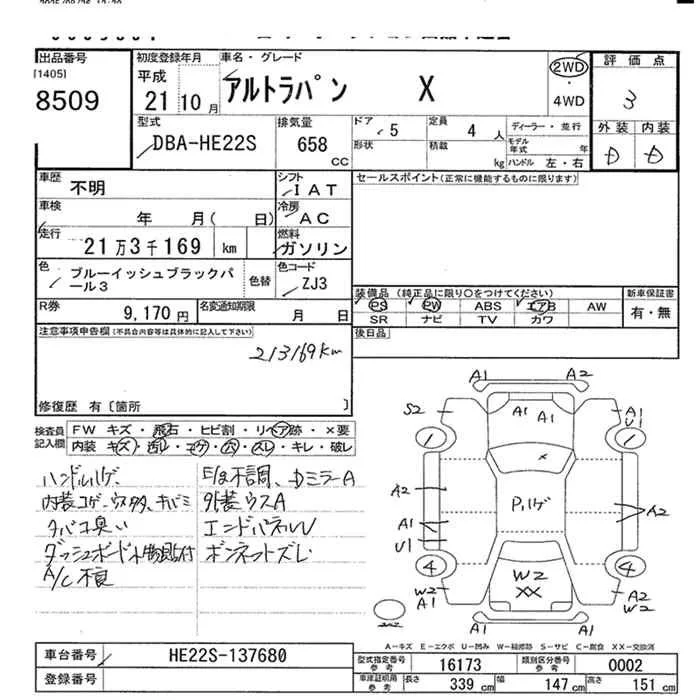 出品番号
[1405]
8509
初度登録年月
平成
21年10月
車名・グレード
アルトラパン X
2WD
・
4WD
評価点
3
外装 内装
D D
型式
DBA-HE22S
排気量
658
CC
ドア
5
形状
定員
4人
積載
kg
ディーラー・並行
モデル年式 年
ハンドル 左・右
車歴
不明
シフト
IAT
セールスポイント(正常に機能するものに限ります)
車検
年 月( 日)
冷房
AC
走行
21万3千169 km
燃料
ガソリン
色
ブルーイッシュブラックパール3
色替
色コード
ZJ3
R券
9,170円
名変通知期限
月 日
装備品(純正品に限り○をつけてください)
PS PW ABS エアB AW
SR ナビ TV カワ
新車保証書
有・無
後日品
注意事項申告欄(不具合内容等は具体的に記入して下さい)
213169km
修復歴 有〔箇所 〕
検査員記入欄
FW キズ・飛石・ヒビ割・リペア跡・×要
内装 キズ・汚レ・コゲ・穴・スレ・キレ・破レ
ハンドルハゲ
内装コゲ、ウス多、キバミ
タバコ臭い
A/C不良
外装ウスA
エンドパネルU
ボンネットズレ
A1 A2
S2 A1 A1 A1 U1
1 × 1
A2 Pハゲ A2
A1
U1
4 W2 XX 4
W2 A1 A2 W2
A－キズ E－エクボ U－凹み W－補修跡 S－サビ C－腐食 XX－交換済
車台番号
HE22S-137680
登録番号
型式指定番号参考
16173
類別区分番号参考
0002
車庫証明用参考
長さ 339 cm
幅 147 cm
高さ 151 cm